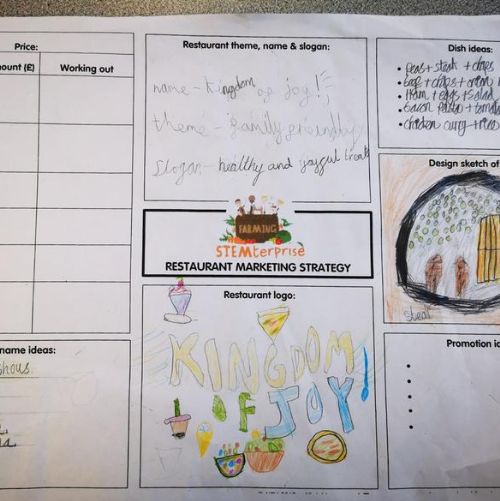 Price:
Amount (£)
Working out
name ideas:
Restaurant theme, name & slogan:
name - Kingdom of joy!
theme - family friendly
Slogan - healthy and joyful treats
FARMING
STEMterprise
RESTAURANT MARKETING STRATEGY
Restaurant logo:
KINGDOM
OF JOY!
Dish ideas:
• Peas + steak + chips
• + chips + onion
• Ham + eggs + salad
• bacon +
• chicken curry + rice
Design sketch of
steak
Promotion